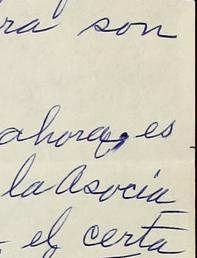 ra son
ahora, es
la Asocia
el certa